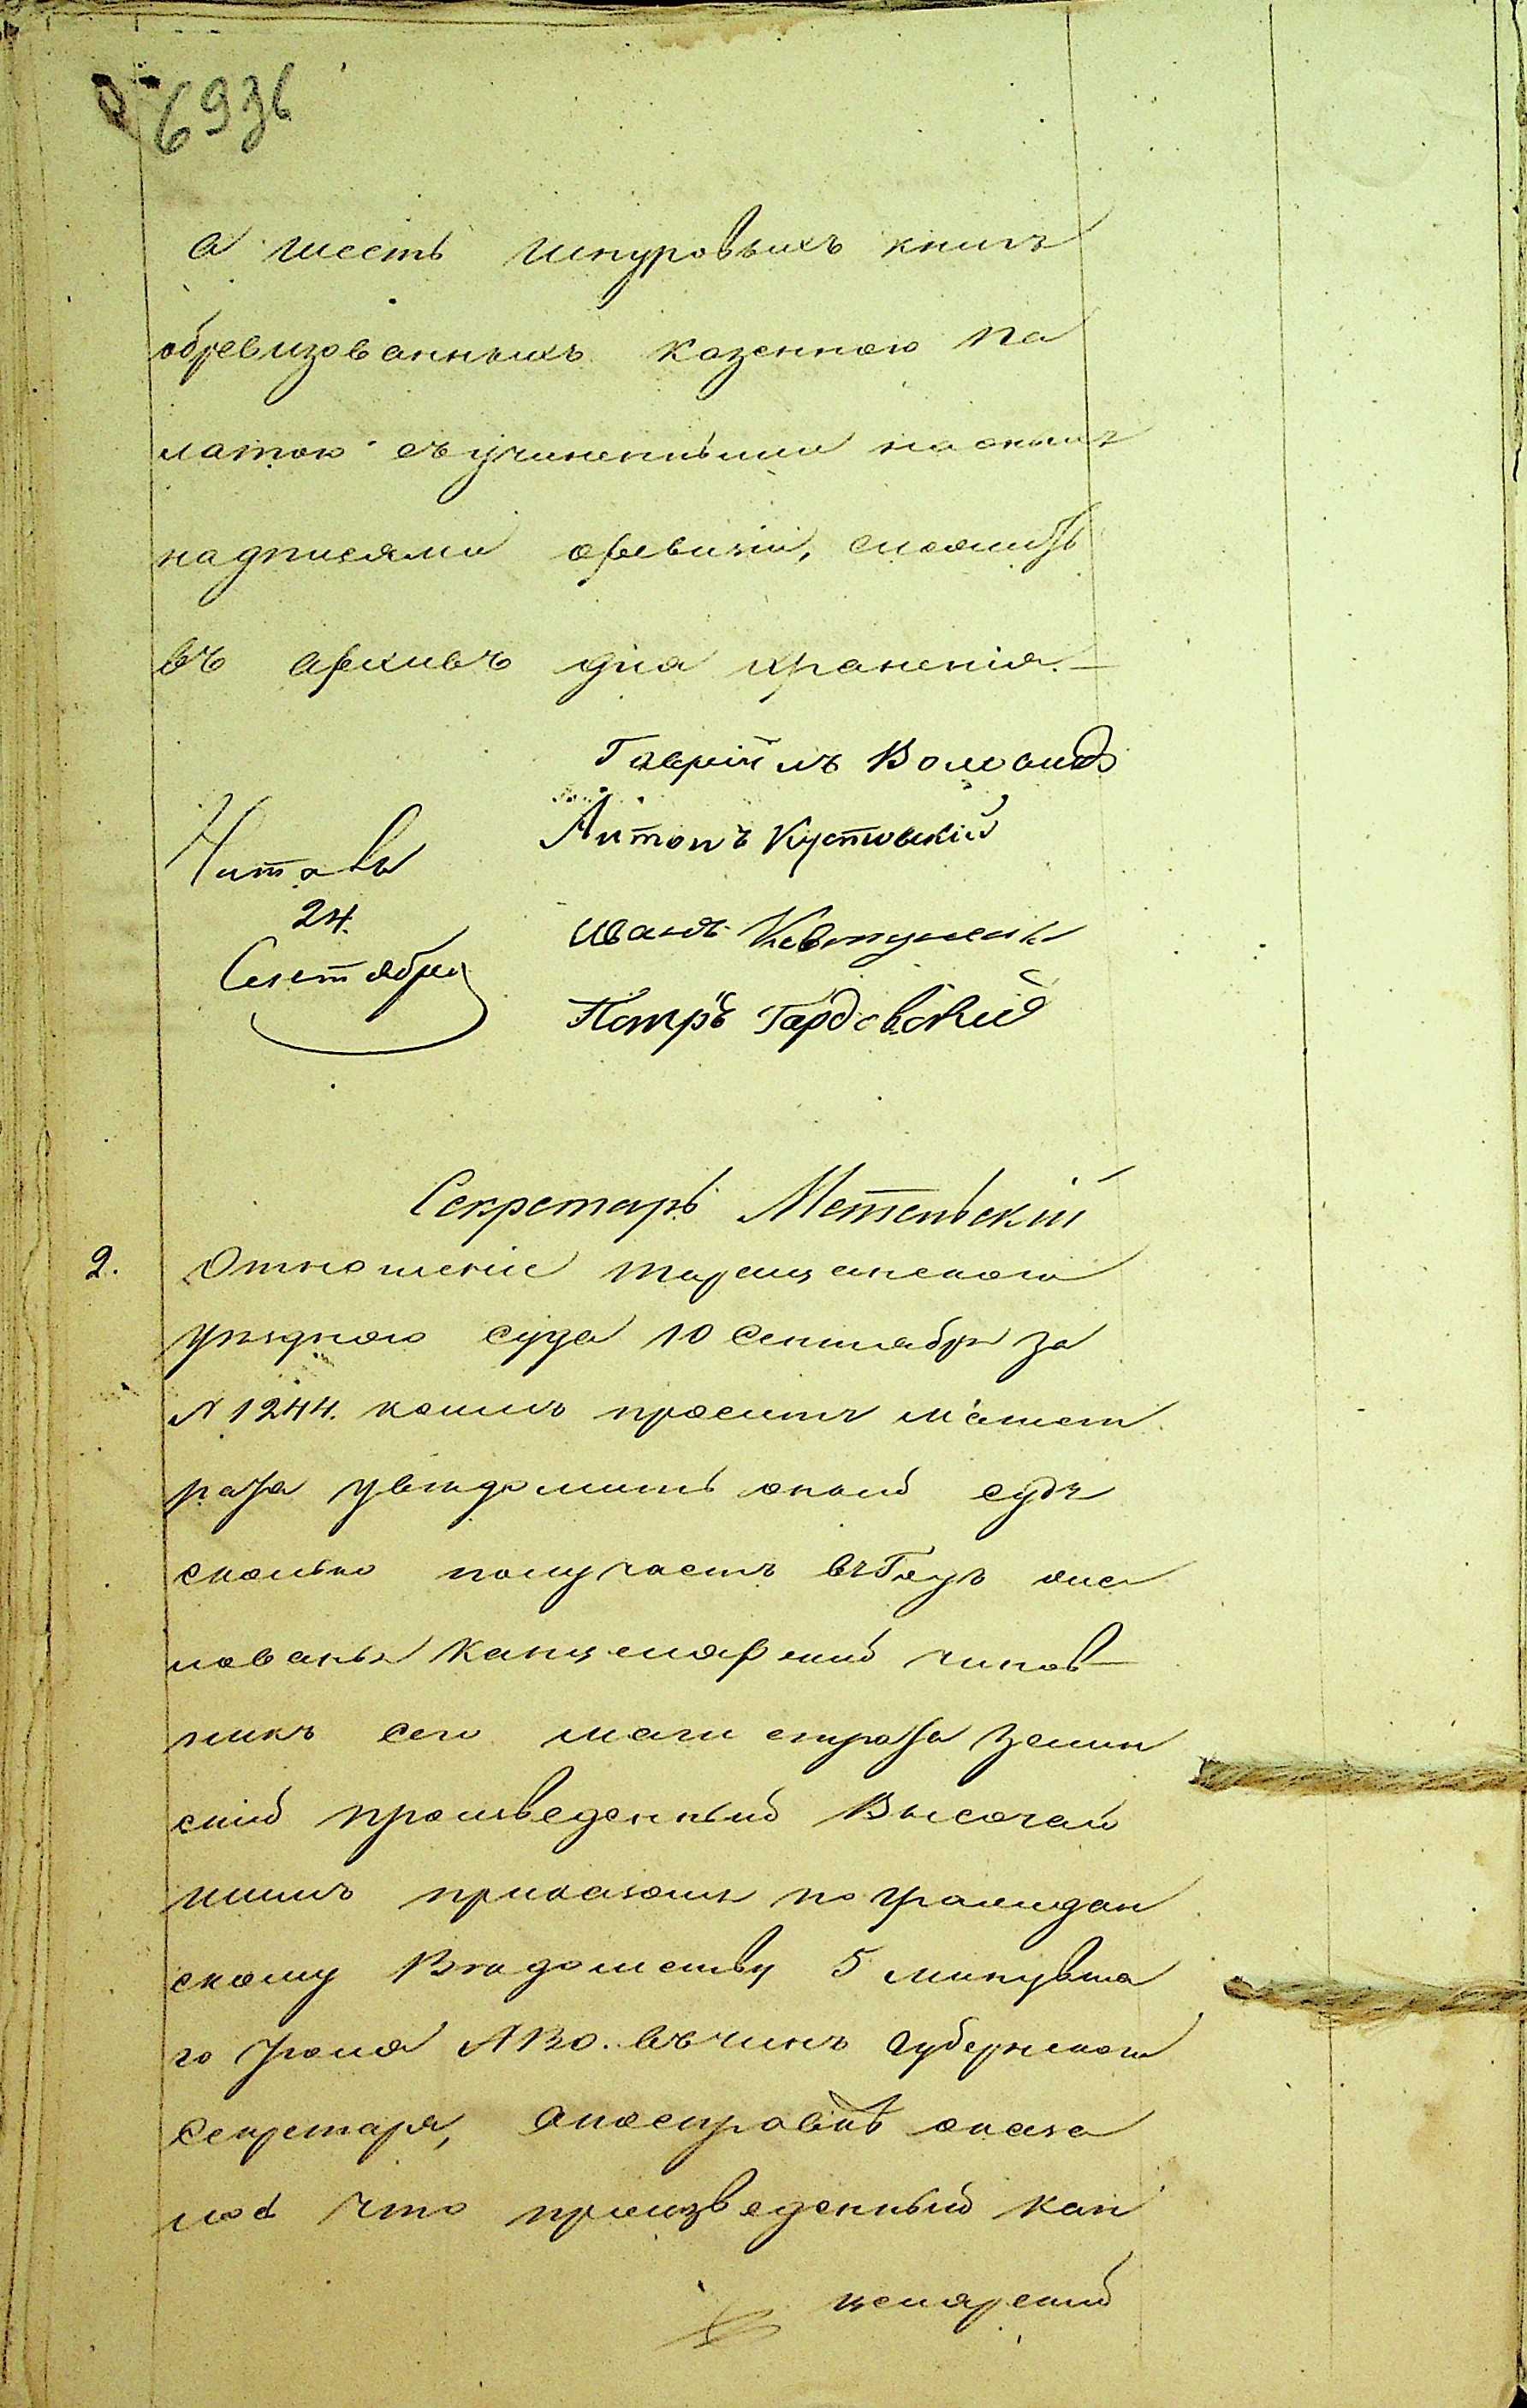 693
а шесть шнуровыхъ книгъ
обревизованныхъ казенною па
латою съ учиненными на оныхъ
надписями о ревизіи, сложить
въ архивъ для храненія. —
Гавріилъ
Антонъ Кустовскій
Читалъ
24.
Сентября
Иванъ
Петръ Гардовскій
Секретарь Метельскій
2. Отношеніе таращанскаго
уѣзднаго суда 10 Сентября за
N 1244. коимъ проситъ магист
рата увѣдомить оный судъ
сколько получаетъ въ Годъ жа
лованья Канцелярскій чинов
никъ сего магистрата Зелин
скій произведенный Высочай
шимъ приказомъ по граждан
скому Вѣдомству 5 минувша
го Іюля N 130. въ чинъ Губернскаго
Секретаря, а по справкѣ оказа
лось что произведенный кан
целярскій